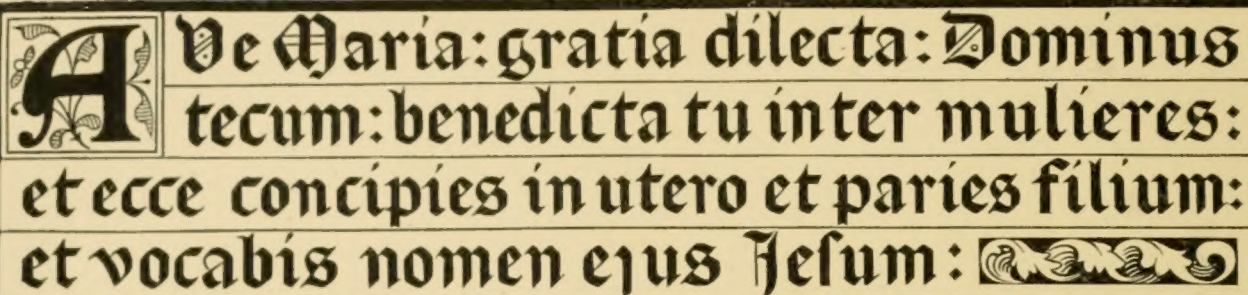 AVe Maria: gratia dilecta: Dominus
tecum: benedicta tu inter mulieres:
et ecce concipies in utero et paries filium:
et vocabis nomen ejus Jeſum: